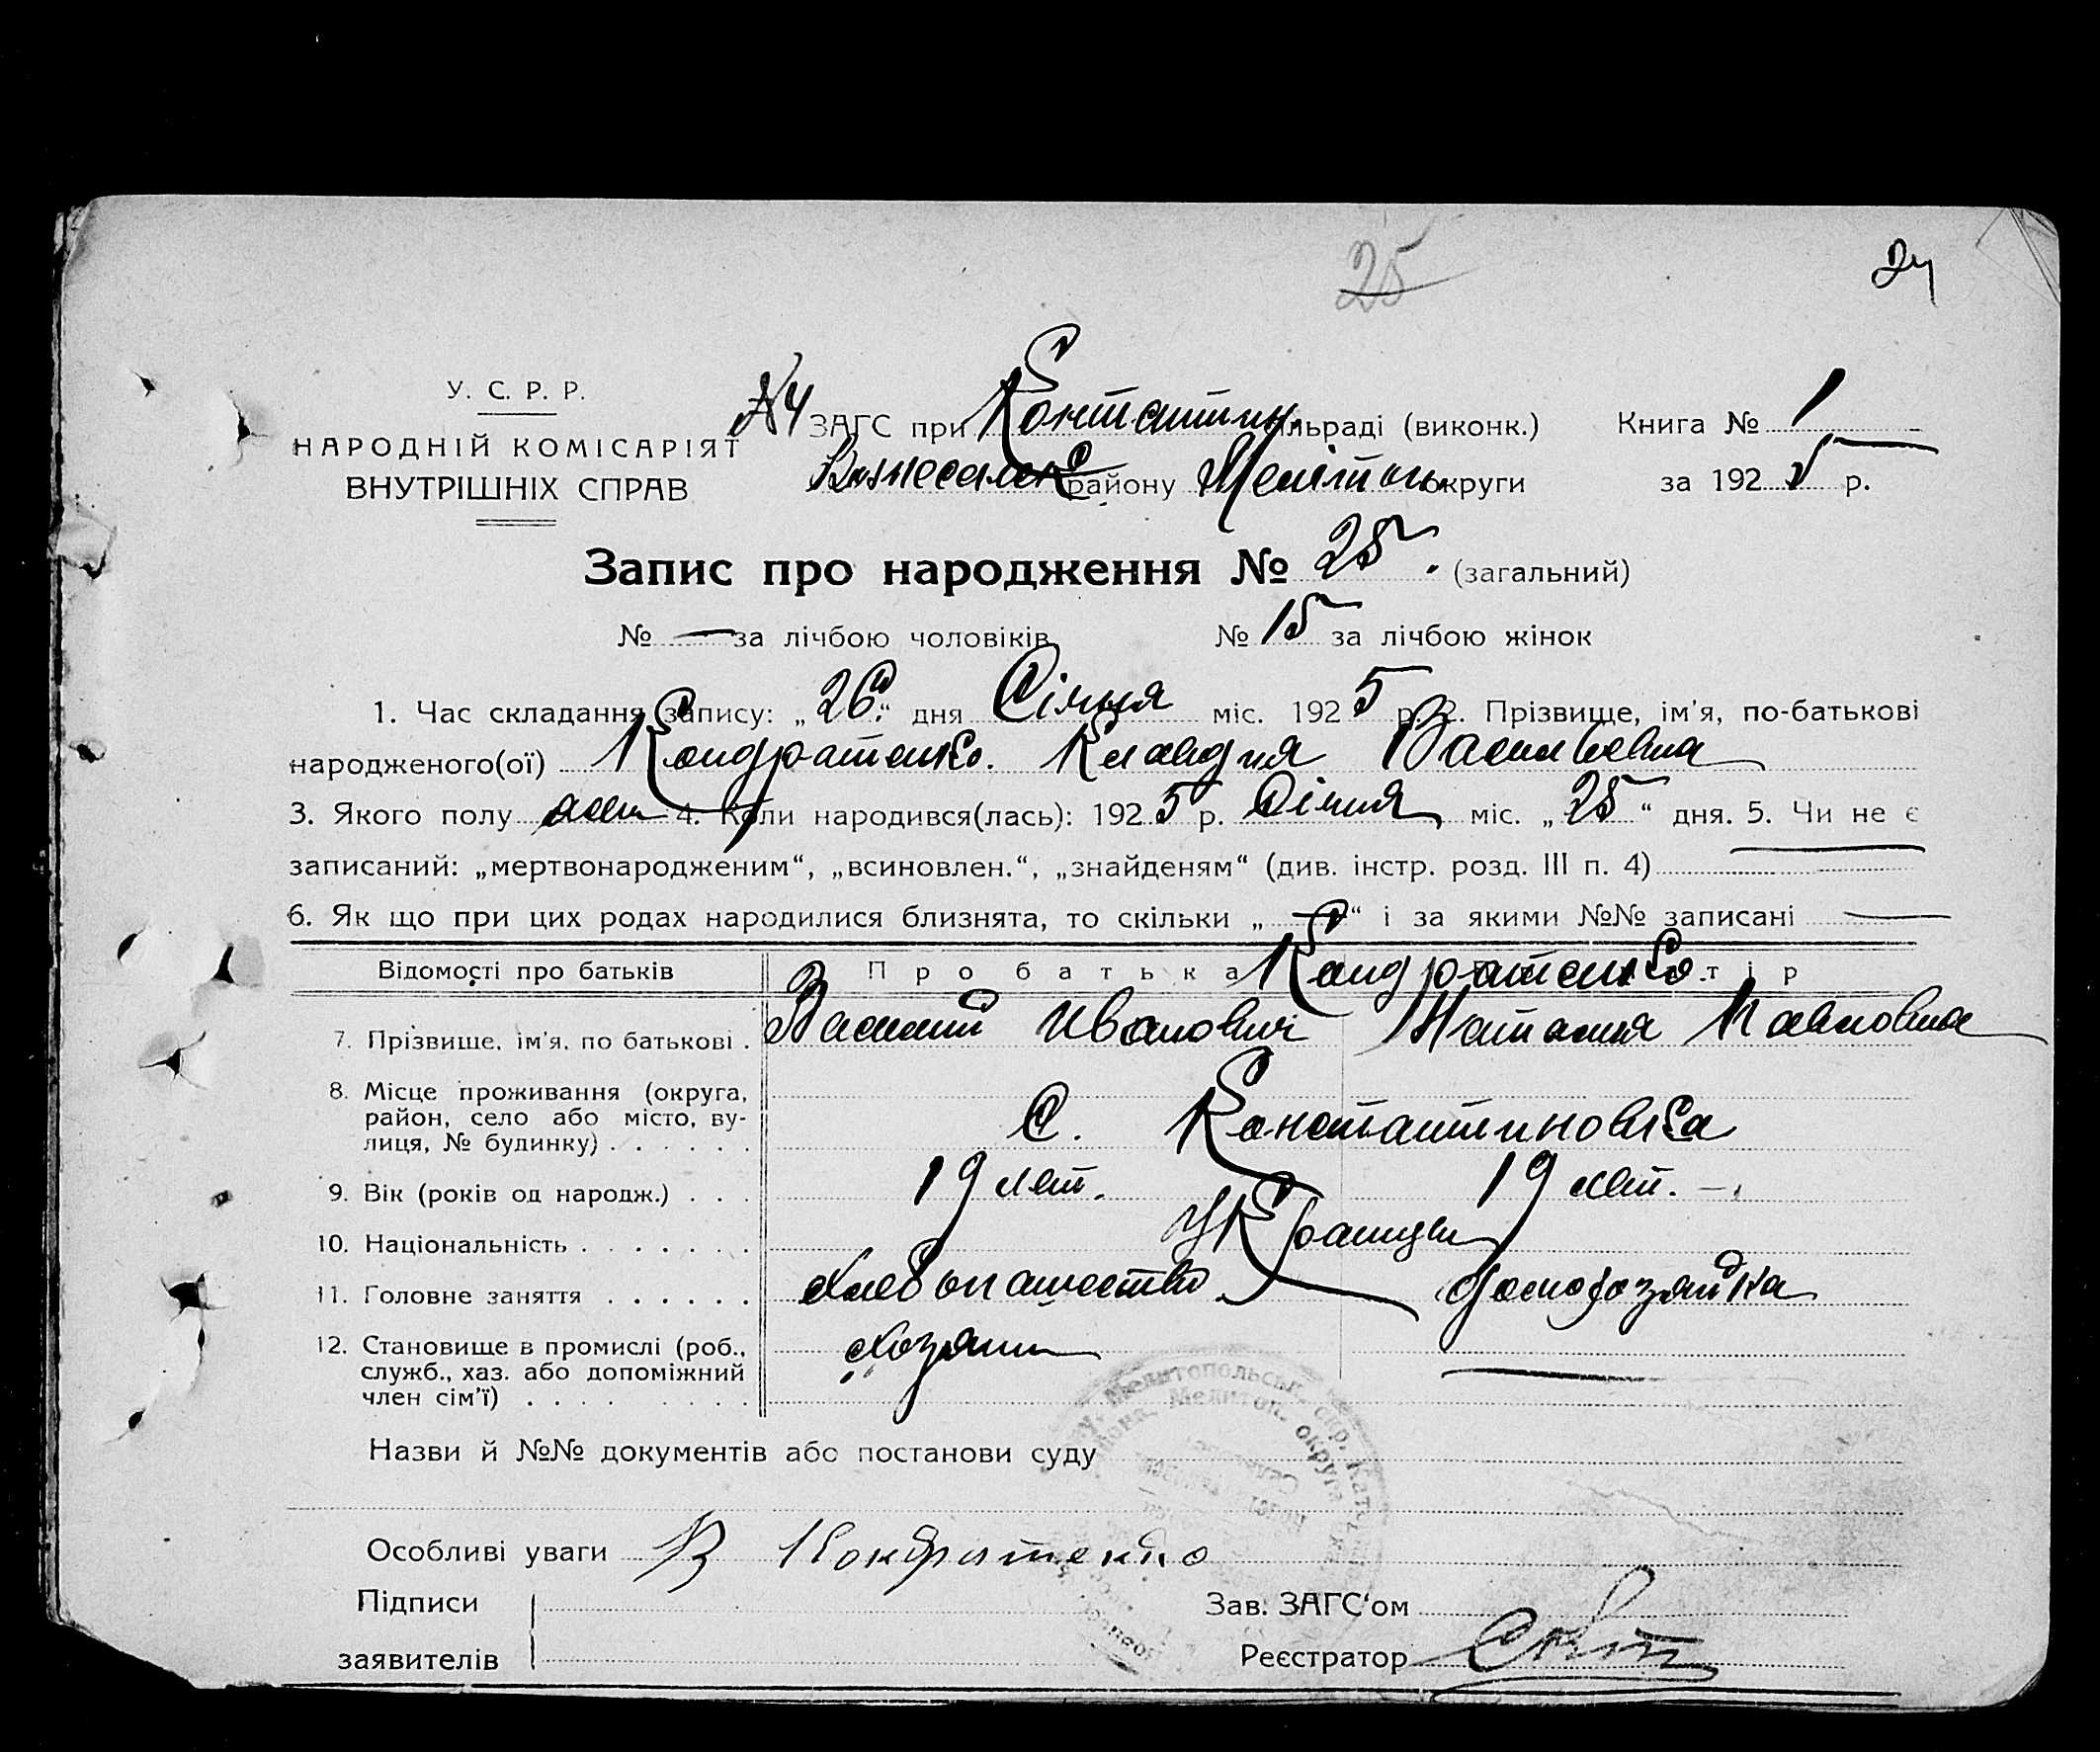 25
24
У. С. Р. Р.
НАРОДНІЙ КОМІСАРІЯТ
ВНУТРІШНІХ СПРАВ
№4 ЗАГС при Контантин. сільраді (виконк.) Книга № 1
Вознесенск району Мелітоп. округи за 1925 р.
Запис про народження № 25. (загальний)
№ — за лічбою чоловіків № 15 за лічбою жінок
1. Час складання запису: „26“ дня Січня міс. 1925 р. 2. Прізвище, ім'я, по-батькові
народженого(ої) Кондратенко. Клавдия Васильевна
3. Якого полу жен 4. Коли народився(лась): 1925 р. Січня міс. „25“ дня. 5. Чи не є
записаний: „мертвонародженим“, „всиновлен.“, „знайденям“ (див. інстр. розд. III п. 4) —
6. Як що при цих родах народилися близнята, то скільки „—“ і за якими №№ записані —
Відомості про батьків Про батька Кондратенко. тір
7. Прізвище, ім'я, по батькові . Василий Иванович Наталия Павловна
8. Місце проживання (округа,
район, село або місто, ву-
лиця, № будинку) . . . . . . С. Константиновка
9. Вік (років од народж.) . . . 19 лет. 19 лет. —
10. Національність . . . . . . . Украинцы
11. Головне заняття . . . . . . Хлебопашество Домохозяйка
12. Становище в промислі (роб.,
служб., хаз. або допоміжний
член сім'ї) . . . . . . . . Хозяин —
Назви й №№ документів або постанови суду
Мелитопольськ. окр. Кат
Мелитоп. округа
Особливі уваги В Кондратенко
Підписи
заявителів
Зав. ЗАГС'ом
Реєстратор